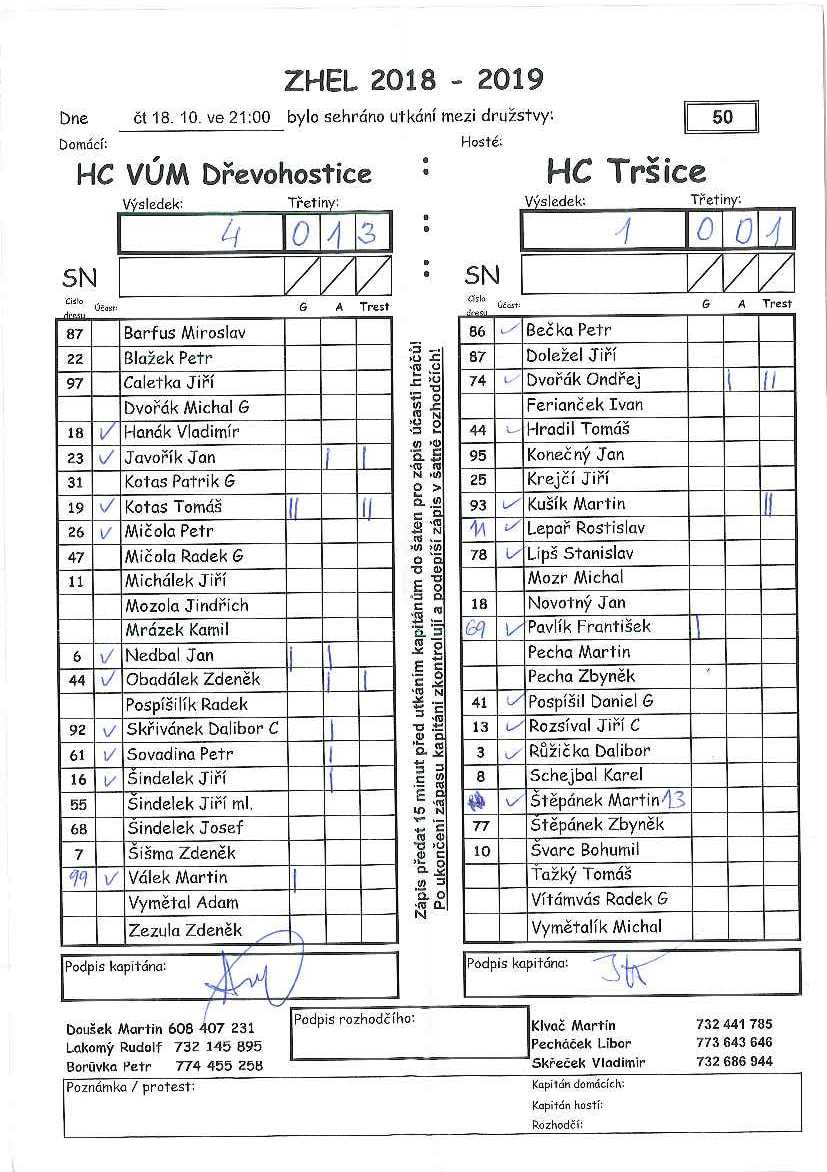 ZHEL 2018 - 2019
Dne čt 18. 10. ve 21:00 bylo sehráno utkání mezi družstvy: 50
Domácí: Hosté:
HC VÚM Dřevohostice : HC Tršice
Výsledek: Třetiny: Výsledek: Třetiny:
4 0 1 3 : 1 0 0 1
SN : SN
Číslo dresu Účast: G A Trest
87 Barfus Miroslav
22 Blažek Petr
97 Caletka Jiří
Dvořák Michal G
18 ✓ Hanák Vladimír
23 ✓ Javořík Jan | |
31 Kotas Patrik G
19 ✓ Kotas Tomáš || ||
26 ✓ Mičola Petr
47 Mičola Radek G
11 Michálek Jiří
Mozola Jindřich
Mrázek Kamil
6 ✓ Nedbal Jan | |
44 ✓ Obadálek Zdeněk | |
Pospíšilík Radek
92 ✓ Skřivánek Dalibor C |
61 ✓ Sovadina Petr |
16 ✓ Šindelek Jiří |
55 Šindelek Jiří ml.
68 Šindelek Josef
7 Šišma Zdeněk
99 ✓ Válek Martin |
Vymětal Adam
Zezula Zdeněk
Zápis předat 15 minut před utkáním kapitánům do šaten pro zápis účasti hráčů!
Po ukončení zápasu kapitáni zkontrolují a podepíší zápis v šatně rozhodčích!
Číslo dresu Účast: G A Trest
86 ✓ Bečka Petr
87 Doležel Jiří
74 ✓ Dvořák Ondřej | ||
Ferianček Ivan
44 ✓ Hradil Tomáš
95 Konečný Jan
25 Krejčí Jiří
93 ✓ Kušík Martin ||
11 ✓ Lepař Rostislav
78 ✓ Lipš Stanislav
Mozr Michal
18 Novotný Jan
69 ✓ Pavlík František |
Pecha Martin
Pecha Zbyněk
41 ✓ Pospíšil Daniel G
13 ✓ Rozsíval Jiří C
3 ✓ Růžička Dalibor
8 Schejbal Karel
✓ Štěpánek Martin 13
77 Štěpánek Zbyněk
10 Švarc Bohumil
Ťažký Tomáš
Vítámvás Radek G
Vymětalík Michal
Podpis kapitána: Podpis kapitána:
Doušek Martin 608 407 231
Lakomý Rudolf 732 145 895
Borůvka Petr 774 455 258
Podpis rozhodčího:
Klvač Martin 732 441 785
Pecháček Libor 773 643 646
Skřeček Vladimír 732 686 944
Poznámka / protest:
Kapitán domácích:
Kapitán hostí:
Rozhodčí: